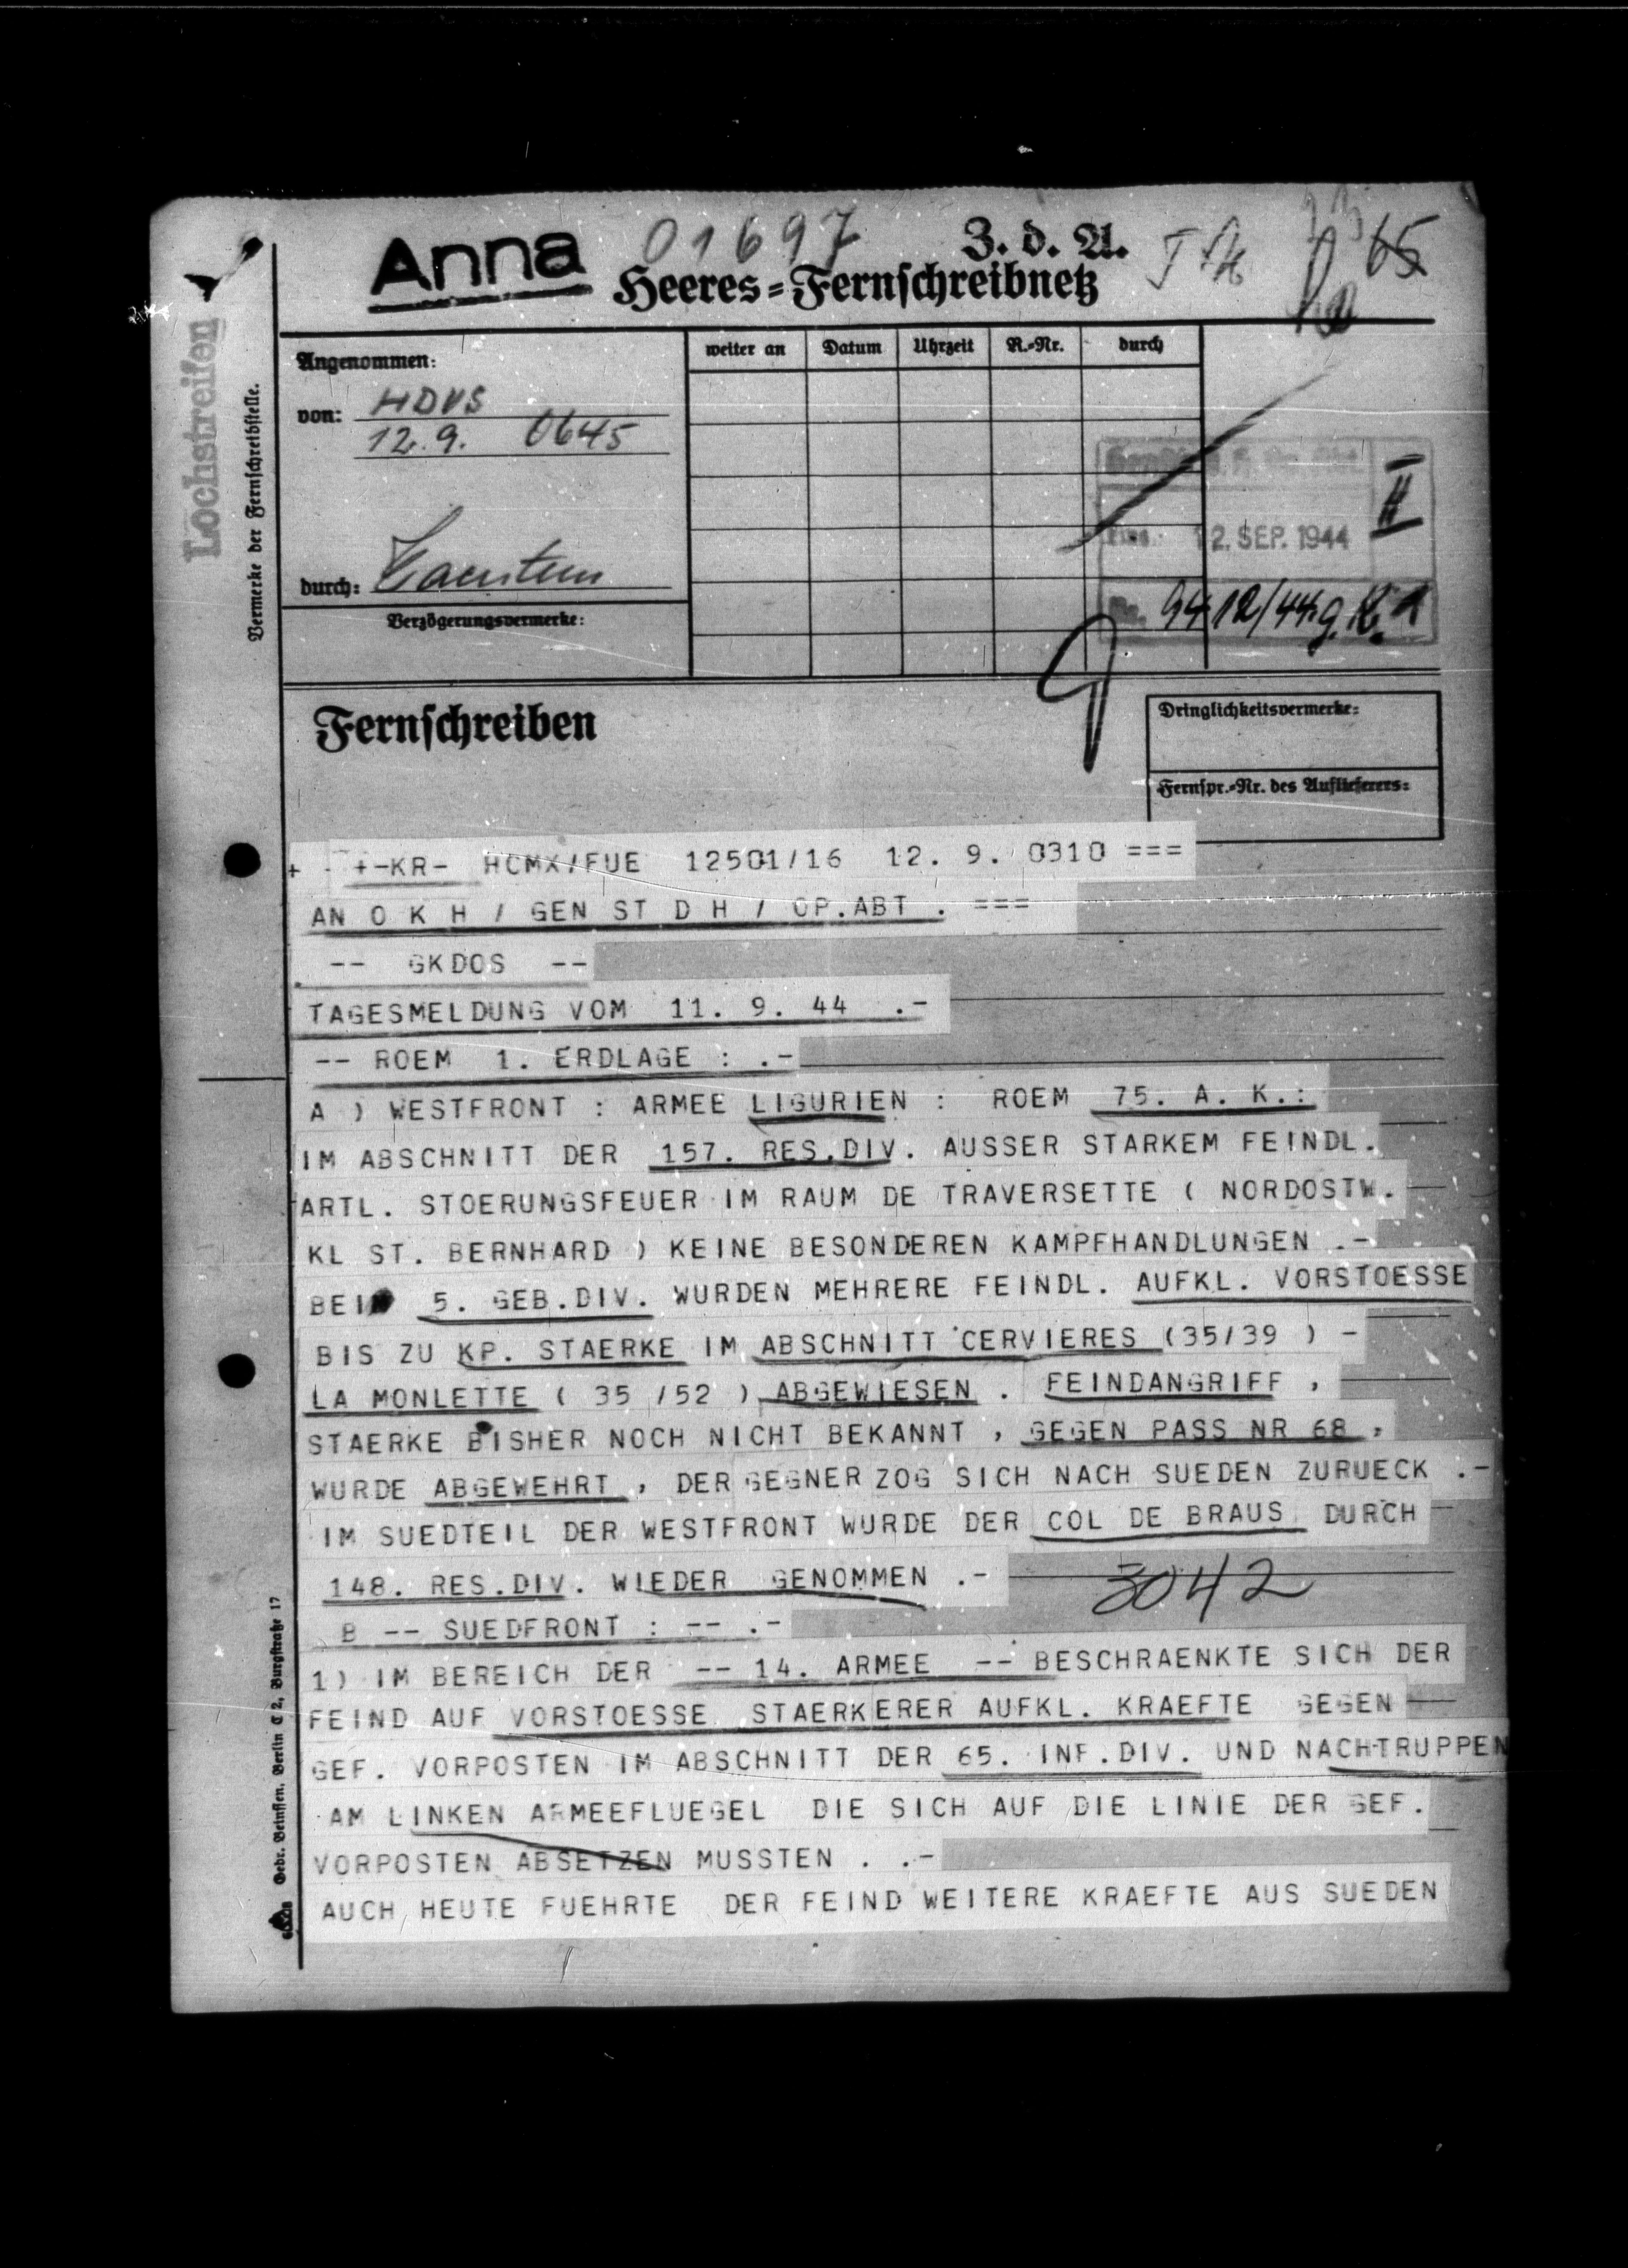 Anna 01697 Z. d. A. 65
Heeres=Fernschreibnetz
Lochstreifen
Vermerke der Fernschreibstelle.
Angenommen:
von: HDVS
12.9. 0645
durch:
Verzögerungsvermerke:
weiter an Datum Uhrzeit R.=Nr. durch
II
12. SEP. 1944
Nr. 9412/44 g.K.
Fernschreiben
Dringlichkeitsvermerke:
Fernspr.=Nr. des Auflieferers:
+ +-KR- HCMX/FUE 12501/16 12. 9. 0310 ===
AN O K H / GEN ST D H / OP.ABT . ===
-- GKDOS --
TAGESMELDUNG VOM 11. 9. 44 .-
-- ROEM 1. ERDLAGE : .-
A ) WESTFRONT : ARMEE LIGURIEN : ROEM 75. A. K.:
IM ABSCHNITT DER 157. RES.DIV. AUSSER STARKEM FEINDL.
ARTL. STOERUNGSFEUER IM RAUM DE TRAVERSETTE ( NORDOSTW.
KL ST. BERNHARD ) KEINE BESONDEREN KAMPFHANDLUNGEN .-
BEI 5. GEB.DIV. WURDEN MEHRERE FEINDL. AUFKL. VORSTOESSE
BIS ZU KP. STAERKE IM ABSCHNITT CERVIERES (35/39 ) -
LA MONLETTE ( 35 /52 ) ABGEWIESEN . FEINDANGRIFF ,
STAERKE BISHER NOCH NICHT BEKANNT , GEGEN PASS NR 68 ,
WURDE ABGEWEHRT , DER GEGNER ZOG SICH NACH SUEDEN ZURUECK .-
IM SUEDTEIL DER WESTFRONT WURDE DER COL DE BRAUS DURCH
148. RES.DIV. WIEDER GENOMMEN .-
3042
B -- SUEDFRONT : -- .-
1) IM BEREICH DER -- 14. ARMEE -- BESCHRAENKTE SICH DER
FEIND AUF VORSTOESSE STAERKERER AUFKL. KRAEFTE GEGEN
GEF. VORPOSTEN IM ABSCHNITT DER 65. INF.DIV. UND NACHTRUPPEN
AM LINKEN ARMEEFLUEGEL DIE SICH AUF DIE LINIE DER GEF.
VORPOSTEN ABSETZEN MUSSTEN . .-
AUCH HEUTE FUEHRTE DER FEIND WEITERE KRAEFTE AUS SUEDEN
Gebr. Beinssen, Berlin C 2, Burgstraße 17